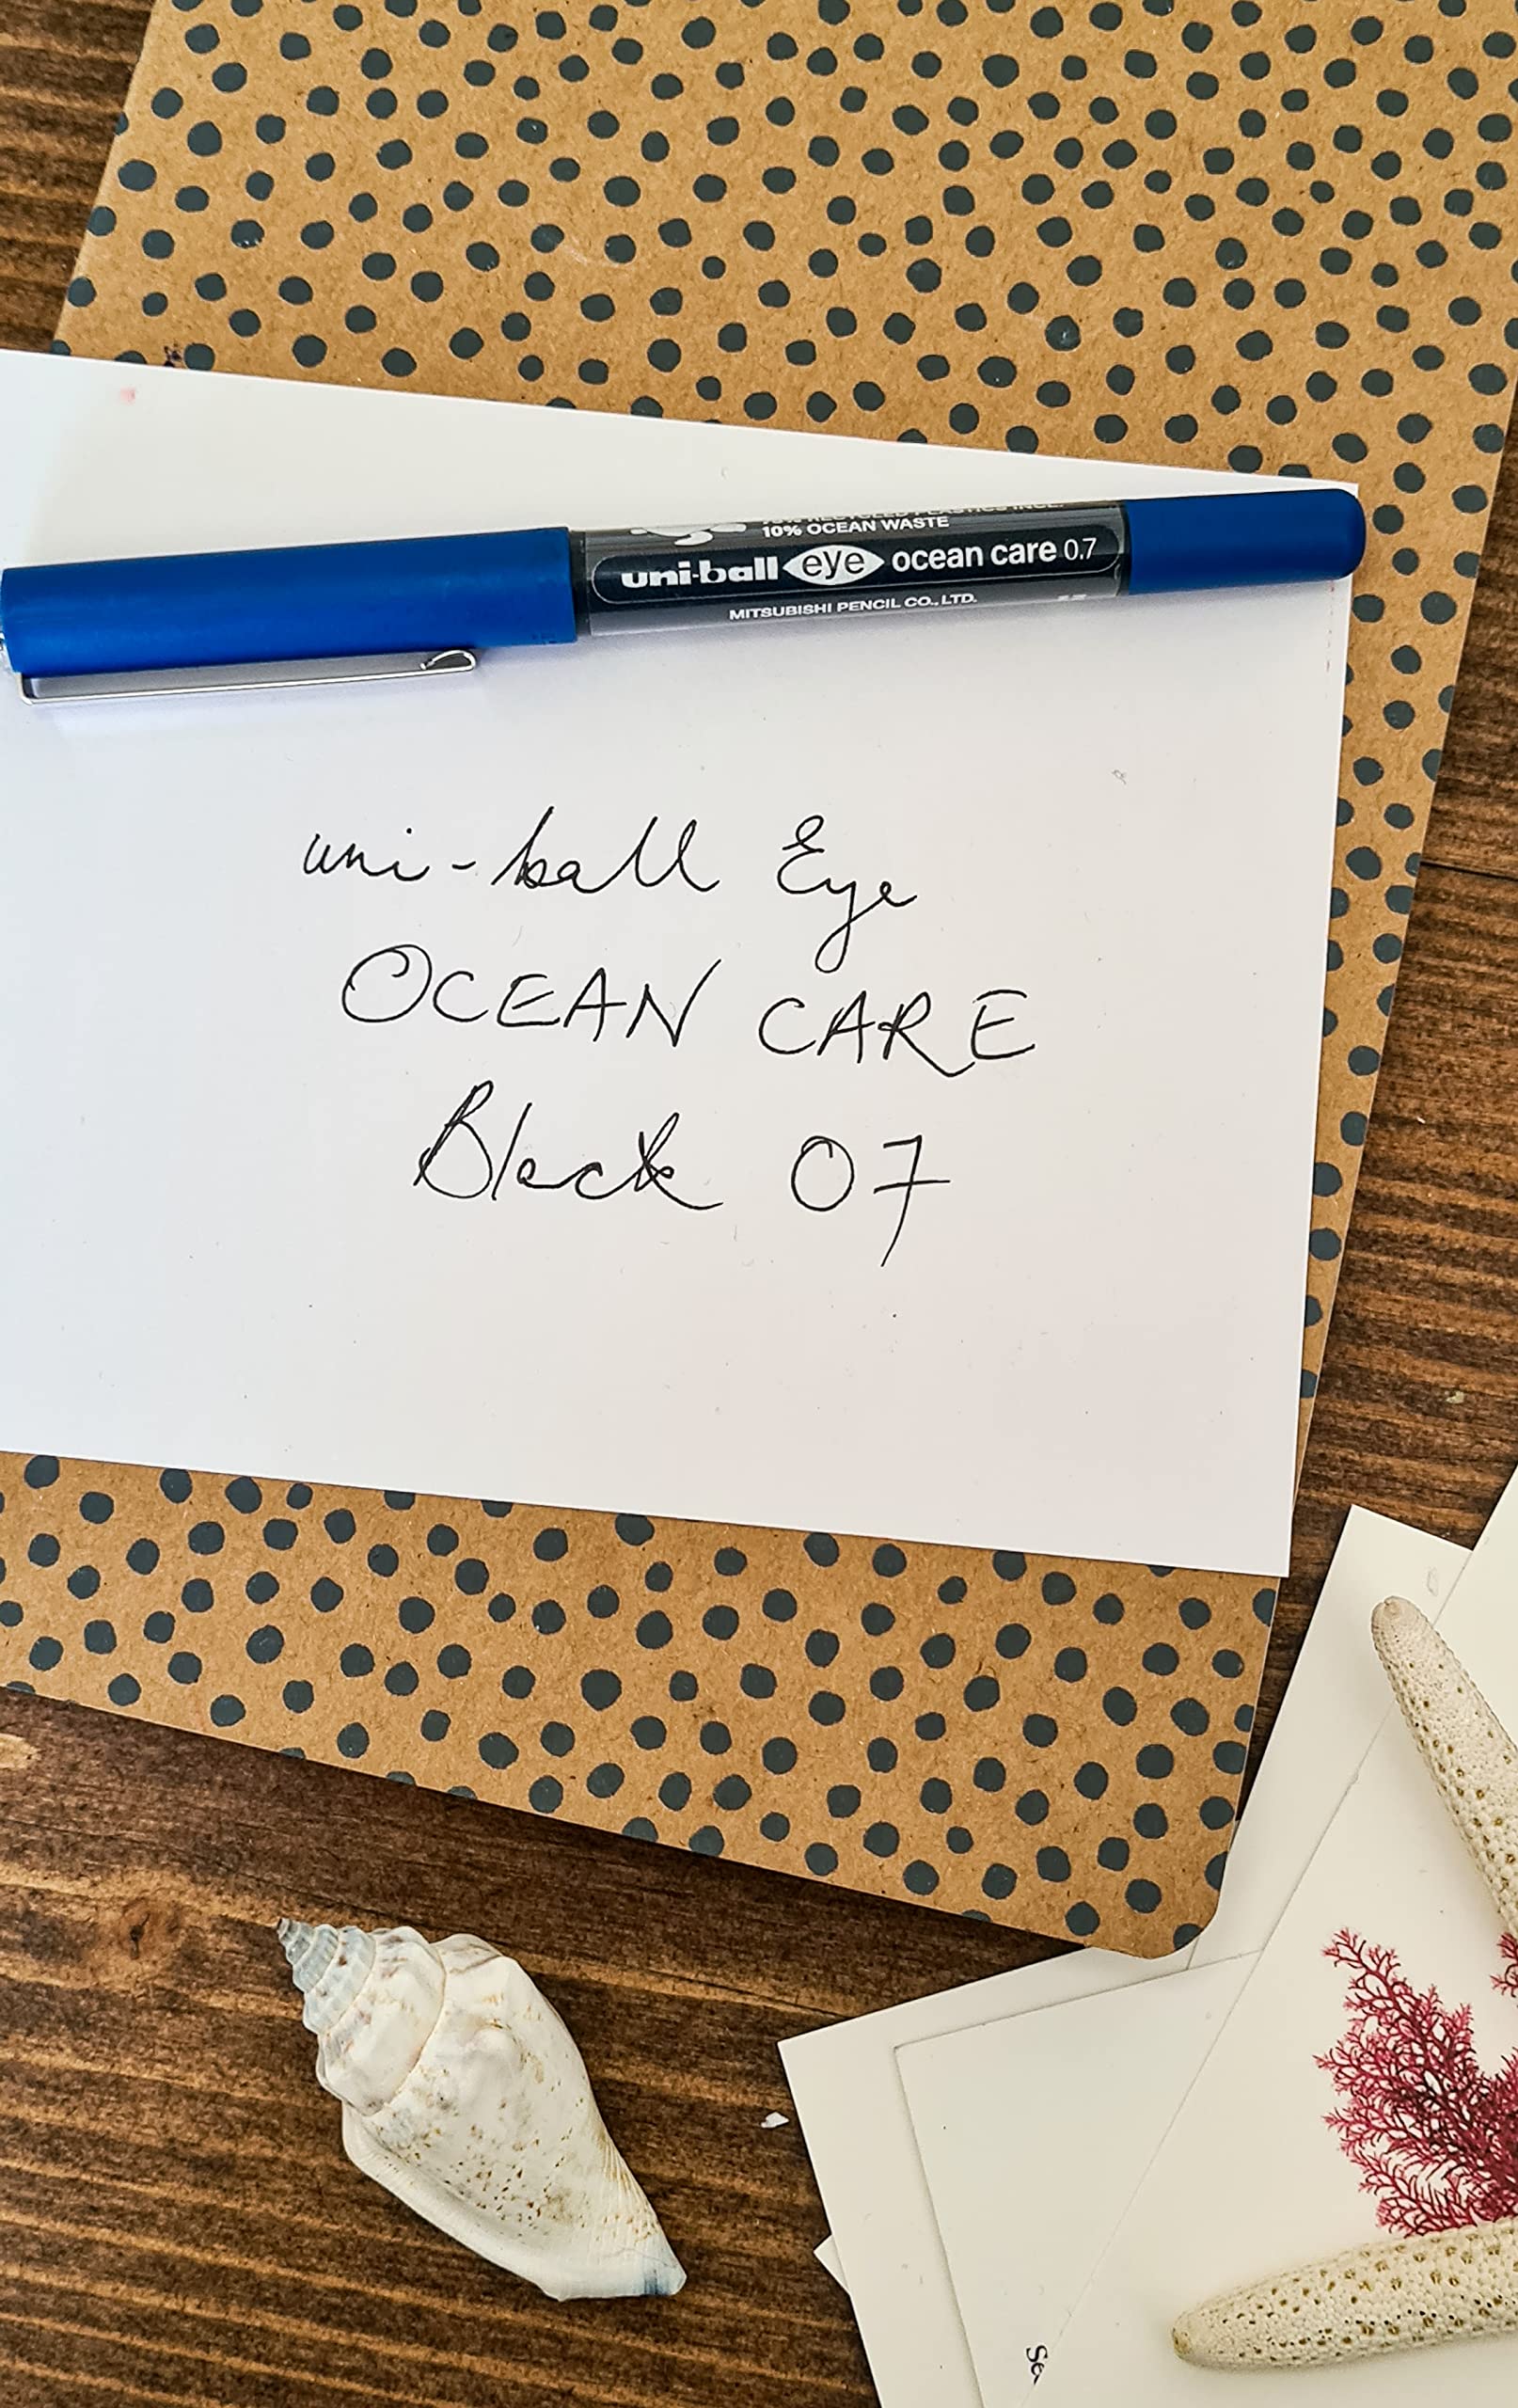 10% OCEAN WASTE
uni-ball eye ocean care 0.7
MITSUBISHI PENCIL CO., LTD.
uni-ball Eye
OCEAN CARE
Black 07